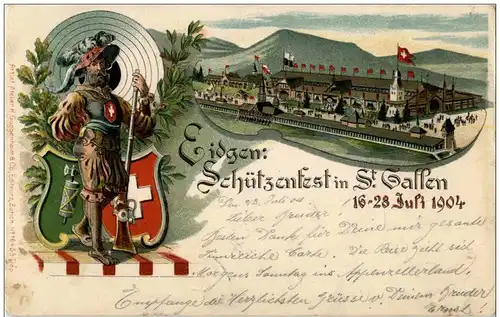 Eidgen:
Schützenfest in St. Gallen
16-28 Juli 1904
Den 23. Juli 04
Lieber Bruder!
Besten Dank für Deine mir gesante
Die Reise geht sich
Morgens Samstag ins Appenzellerland.
Empfange die Herzlichsten Grüsse v. Deinem Bruder
Ernst